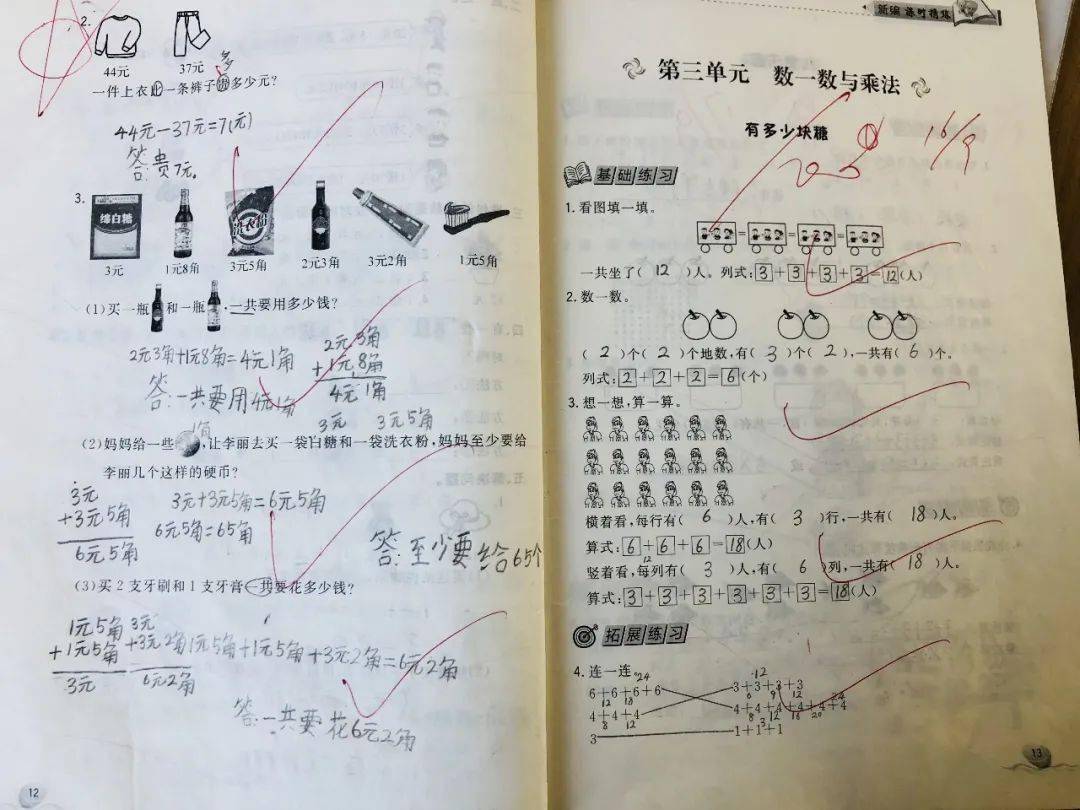 2.
44元 37元 多
一件上衣比一条裤子贵多少元?
44元－37元=7(元)
答:贵7元。
3.
绵白糖
洗衣粉
3元 1元8角 3元5角 2元3角 3元2角 1元5角
(1)买一瓶 和一瓶 ,一共要用多少钱?
2元3角+1元8角=4元1角
2元3角
+1元8角
4元1角
答:一共要用4元1角
3元 3元5角
(2)妈妈给一些 1角 ,让李丽去买一袋白糖和一袋洗衣粉,妈妈至少要给
李丽几个这样的硬币?
3元
+3元5角
6元5角
3元+3元5角=6元5角
6元5角=65角
答:至少要给65个
(3)买2支牙刷和1支牙膏一共要花多少钱?
1元5角
+1元5角
3元
3元
+3元2角
6元2角
1元5角+1元5角+3元2角=6元2角
答:一共要花6元2角
12
新编 课时精练
第三单元 数一数与乘法
有多少块糖
16/9
基础练习
1.看图填一填。
一共坐了( 12 )人。列式:3+3+3+3=12(人)
2.数一数。
( 2 )个( 2 )个地数,有( 3 )个( 2 ),一共有( 6 )个。
列式:2+2+2=6(个)
3.想一想,算一算。
横着看,每行有( 6 )人,有( 3 )行,一共有( 18 )人。
算式:6+6+6=18(人)
12
竖着看,每列有( 3 )人,有( 6 )列,一共有( 18 )人。
算式:3+3+3+3+3+3=18(人)
拓展练习
4.连一连。
24 12
6+6+6+6 3+3+3+3
12 18 6 9 12 24
4+4+4 4+4+4+4+4+4
8 12 8 12 16 20
3 1+1+1
3
13